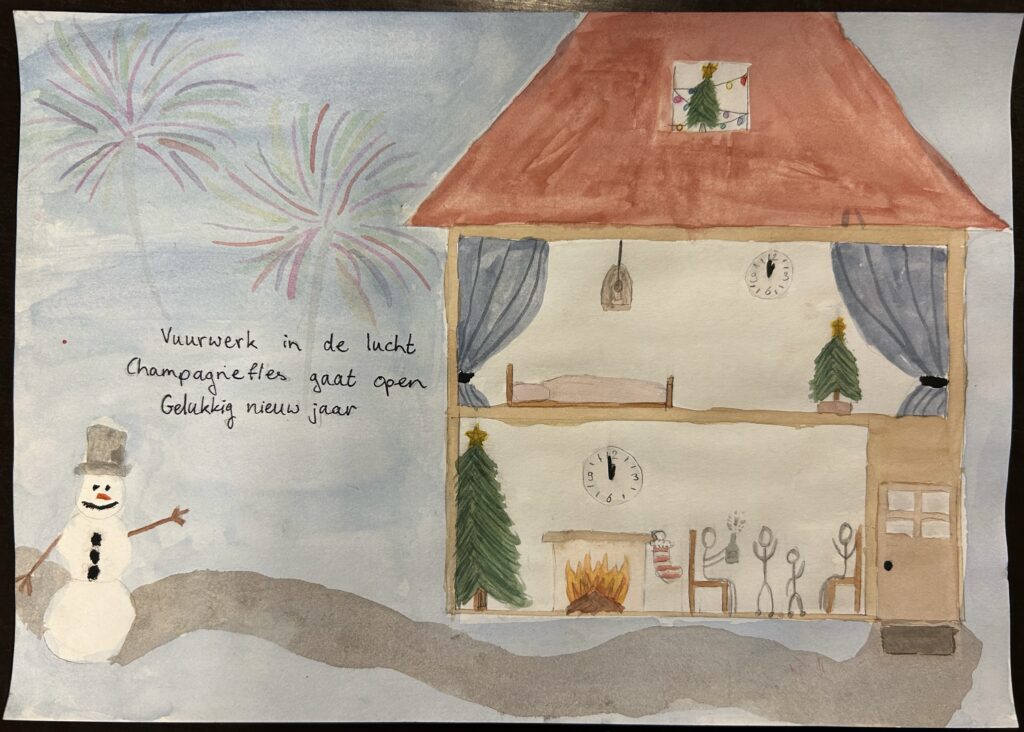 Vuurwerk in de lucht
Champagnefles gaat open
Gelukkig nieuw jaar